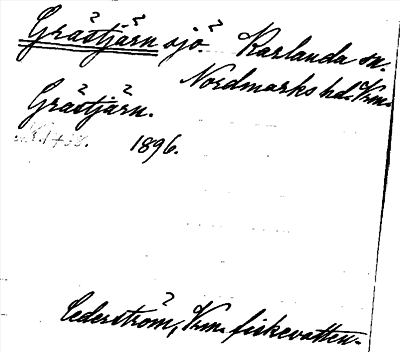 Grästjärn sjö. Karlanda sn.
Nordmarks hd. Vrm.
Grästjärn.
1896.
Cederström, Vrm. fiskevatten.